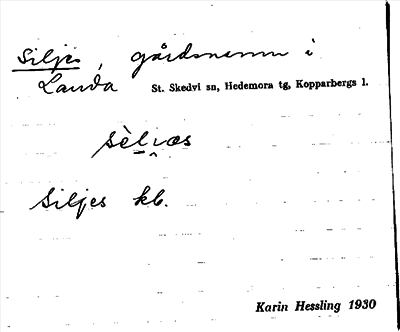 Siljes, gårdsnamn i
Landa St. Skedvi sn, Hedemora tg, Kopparbergs l.
sèli̯æs
Siljes kb.
Karin Hessling 1930